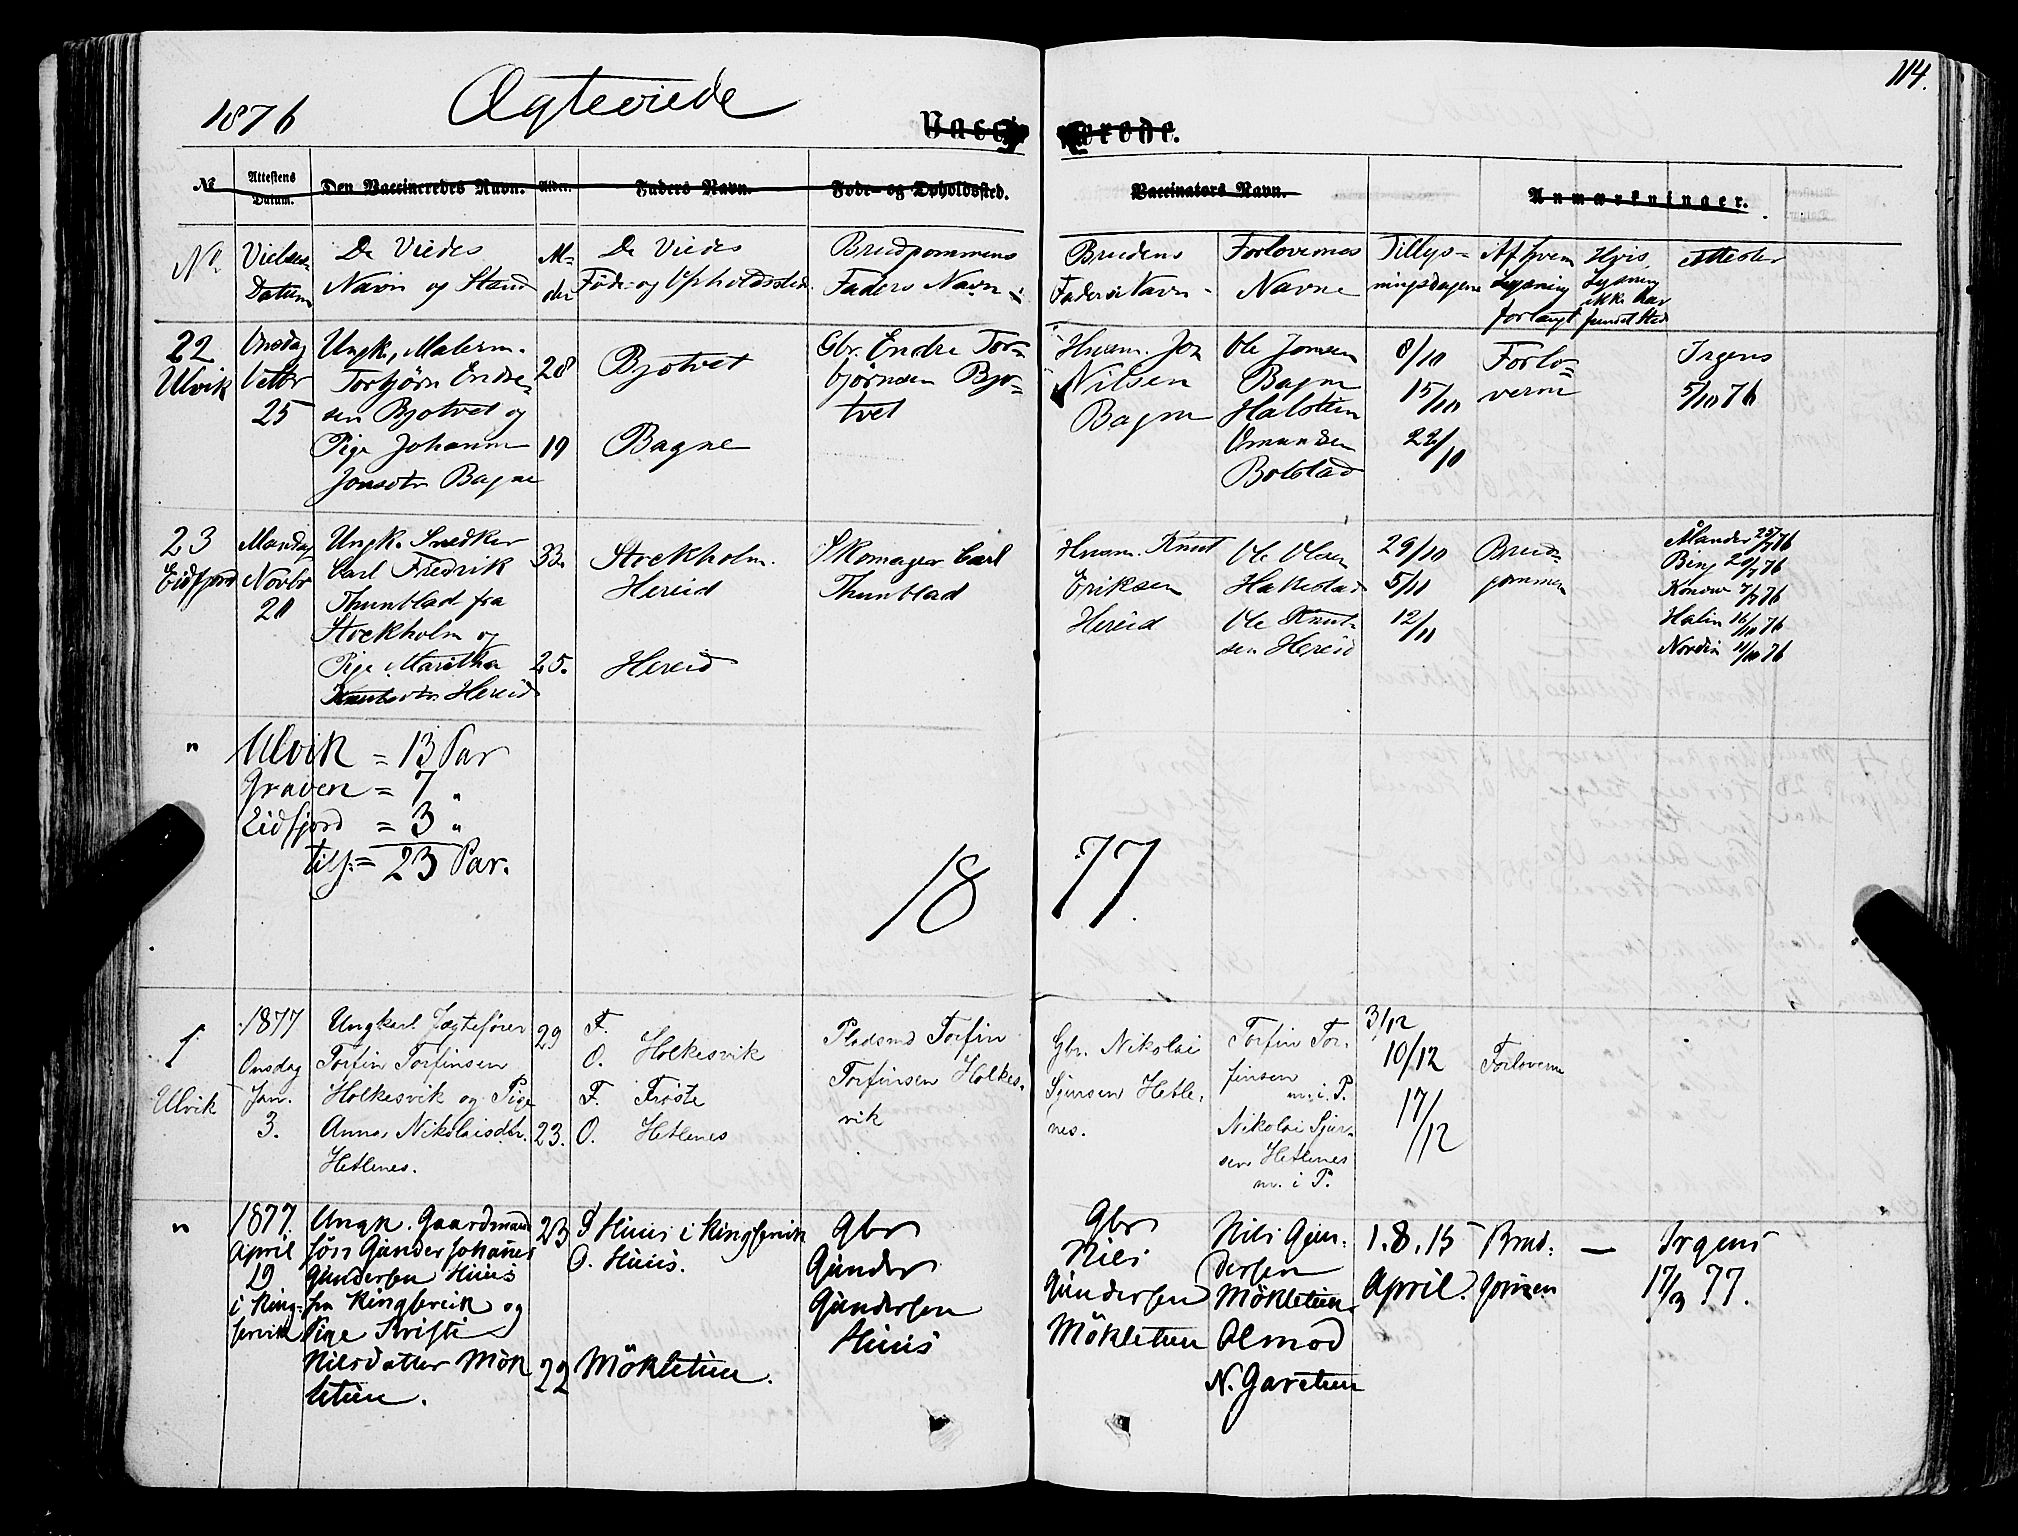 114.
1876 Ægteviede
Vaccinerede.
No Attestens Datum. Den Vaccineredes Navn. Alder. Faders Navn. Føde- og Opholdssted. Vaccinators Navn. Anmærkninger.
No. Vielses- Datum
De Viedes
Navn og Stand
Al-
der
De Viedes
Føde- og Opholdssted
Brudgommens
Faders Navn
Brudens
Faders Navn
Forlovernes
Navne
Tillys-
ningsdagene
Af hvem
Lysning
forlangt
Hvis
Lysning
ikke har
fundet Sted
Attester
22
Ulvik
Onsdag
Octbr
25
Ungk. Malerm.
Torbjörn Endre-
sen Bjotvet og
Pige Johanne
Jonsdtr Bagne
28
19
Bjotvet
Bagne
Gbr. Endre Tor-
bjørnsen Bjo-
tvet
Huusm. Jon
Nilsen
Bagne
Ole Jonsen
Bagne
Halstein
Omundsen
Bolstad
8/10
15/10
22/10
Forlo-
verne
Irgens
5/10 76
23
Eidfjord
Mandag
Novbr
20
Ungk. Snedker
Carl Fredrik
Thunblad fra
Stockholm og
Pige Maritha
Knutsdtr Hereid
33
25.
Stockholm.
Hereid
Hereid
Skomager Carl
Thunblad
Huusm. Knut
Eriksen
Hereid
Ole Olsen
Hakestad
Ole Knut-
sen Hereid
29/10
5/11
12/11
Brud-
gommen
Ålander 25/7 76
Bing 20/7 76
Konow 7/7 76
Halin 16/10 76
Nordin 11/10 76
" Ulvik = 13 Par
Graven = 7 "
Eidfjord = 3 "
tils. = 23 Par.
1877.
1
Ulvik
1877
Onsdag
Jan.
3.
Ungkarl Jægtefører
Torfin Torfinsen
Holkesvik og Pige
Anna Nikolaisdtr.
Hetlenes.
29
23.
F.
O. Holkesvik
F. Frøste
O. Hetlenes
Pladsmd Torfin
Torfinsen Holkes-
vik
Gbr. Nikolai
Sjursen Hetle-
nes.
Torfin Tor-
finsen
m. i. P.
Nikolai Sjur-
sen Hetlenes
m. i P.
3/12
10/12
17/12
Forloverne
"
1877.
April
19
i King-
servik
Ungk. Gaardmand
søn Gunder Johannes
Gundersen Huus
fra Kingservik og
Pige Kristi
Nilsdatter Mök
letuen.
23
22
F Huus i Kingservik
O. Huus.
Mökletuen.
Gbr
Gunder
Gundersen
Huus
Gbr
Nils
Gundersen
Mökletuen
Nils Gun-
dersen
Mökletuen
Olmod
N. Garetuen
1. 8. 15
April.
Brud-
gomen
—
Irgens
17/3 77.